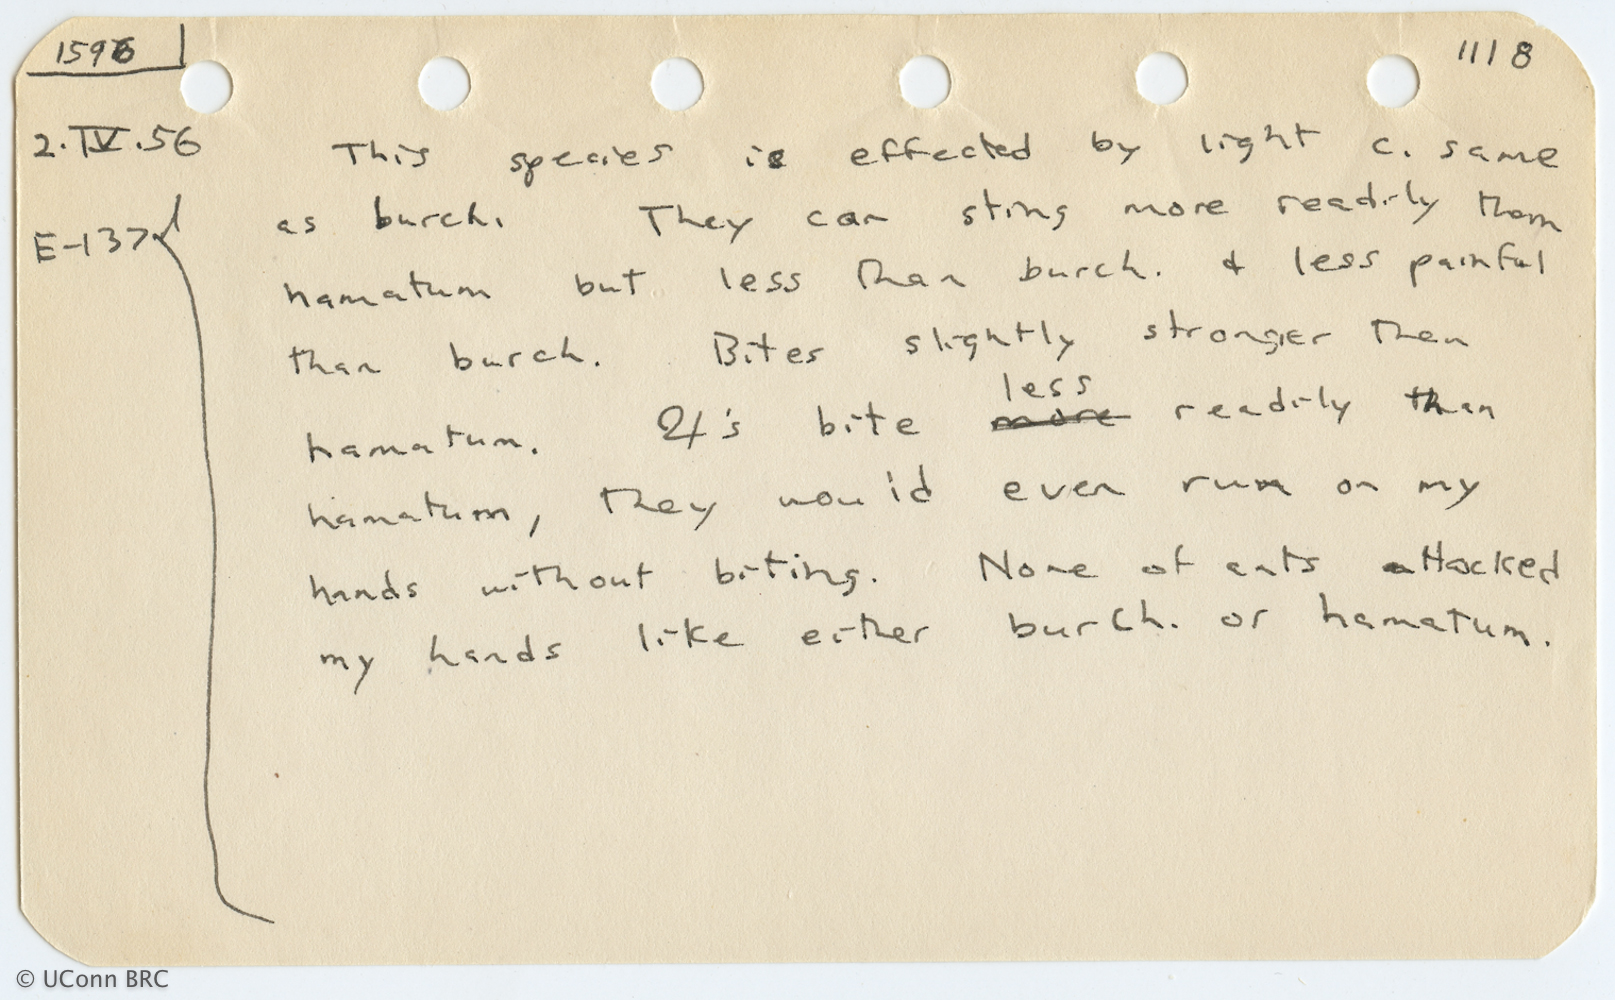 1596
1118
2.IV.56
E-137
This species is effected by light c. same
as burch. They can sting more readily than
hamatum but less than burch. & less painful
than burch. Bites slightly stronger than
hamatum. ♃'s bite more less readily than
hamatum, they would even run on my
hands without biting. None of ants attacked
my hands like either burch. or hamatum.
© UConn BRC